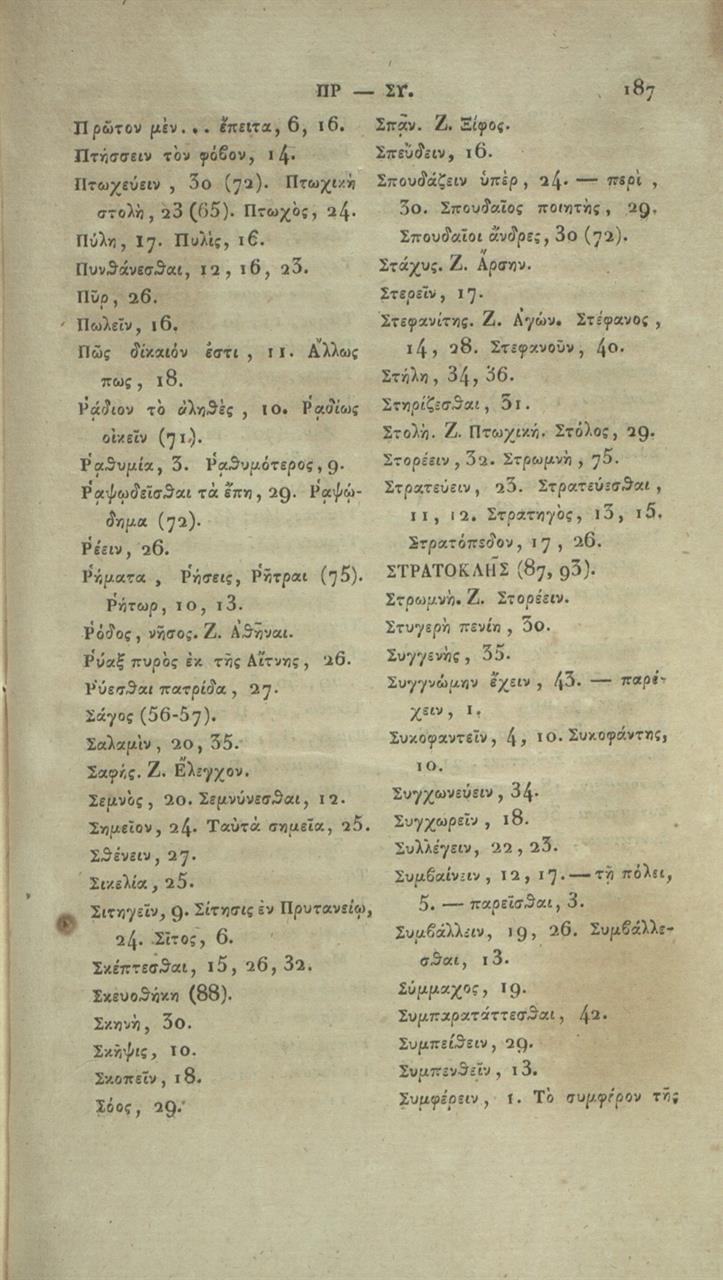 ΠΡ — ΣΥ. 187
Πρῶτον μὲν... ἔπειτα, 6, 16.
Πτήσσειν τὸν φόβον, 14.
Πτωχεύειν, 30 (72). Πτωχικὴ
στολὴ, 23 (65). Πτωχὸς, 24.
Πύλη, 17. Πυλὶς, 16.
Πυνθάνεσθαι, 12, 16, 23.
Πῦρ, 26.
Πωλεῖν, 16.
Πῶς δίκαιόν ἐστι, 11. Ἄλλως
πως, 18.
Ῥάδιον τὸ ἀληθὲς, 10. Ῥᾳδίως
οἰκεῖν (71.).
Ῥᾳθυμία, 3. Ῥᾳθυμότερος, 9.
Ῥαψῳδεῖσθαι τὰ ἔπη, 29. Ῥαψώ-
δημα (72).
Ῥέειν, 26.
Ῥήματα, Ῥήσεις, Ῥῆτραι (75).
Ῥήτωρ, 10, 13.
Ῥόδος, νῆσος. Ζ. Ἀθῆναι.
Ῥύαξ πυρὸς ἐκ τῆς Αἴτνης, 26.
Ῥύεσθαι πατρίδα, 27.
Σάγος (56-57).
Σαλαμὶν, 20, 35.
Σαφής. Ζ. Ἔλεγχον.
Σεμνὸς, 20. Σεμνύνεσθαι, 12.
Σημεῖον, 24. Ταὐτὰ σημεῖα, 25.
Σθένειν, 27.
Σικελία, 25.
Σιτηγεῖν, 9. Σίτησις ἐν Πρυτανείῳ,
24. Σῖτος, 6.
Σκέπτεσθαι, 15, 26, 32.
Σκευοθήκη (88).
Σκηνὴ, 30.
Σκῆψις, 10.
Σκοπεῖν, 18.
Σόος, 29.
Σπᾷν. Ζ. Ξίφος.
Σπεύδειν, 16.
Σπουδάζειν ὑπὲρ, 24. — περὶ,
30. Σπουδαῖος ποιητὴς, 29.
Σπουδαῖοι ἄνδρες, 30 (72).
Στάχυς. Ζ. Ἄρσην.
Στερεῖν, 17.
Στεφανίτης. Ζ. Ἀγών. Στέφανος,
14, 28. Στεφανοῦν, 40.
Στήλη, 34, 36.
Στηρίζεσθαι, 31.
Στολὴ. Ζ. Πτωχική. Στόλος, 29.
Στορέειν, 32. Στρωμνὴ, 75.
Στρατεύειν, 23. Στρατεύεσθαι,
11, 12. Στρατηγὸς, 13, 15.
Στρατόπεδον, 17, 26.
ΣΤΡΑΤΟΚΛΗΣ (87, 93).
Στρωμνὴ. Ζ. Στορέειν.
Στυγερὴ πενίη, 30.
Συγγενὴς, 35.
Συγγνώμην ἔχειν, 43. — παρέ-
χειν, 1.
Συκοφαντεῖν, 4, 10. Συκοφάντης,
10.
Συγχωνεύειν, 34.
Συγχωρεῖν, 18.
Συλλέγειν, 22, 23.
Συμβαίνειν, 12, 17. — τῇ πόλει,
5. — παρεῖσθαι, 3.
Συμβάλλειν, 19, 26. Συμβάλλε-
σθαι, 13.
Σύμμαχος, 19.
Συμπαρατάττεσθαι, 42.
Συμπείθειν, 29.
Συμπενθεῖν, 13.
Συμφέρειν, 1. Τὸ συμφέρον τῆς